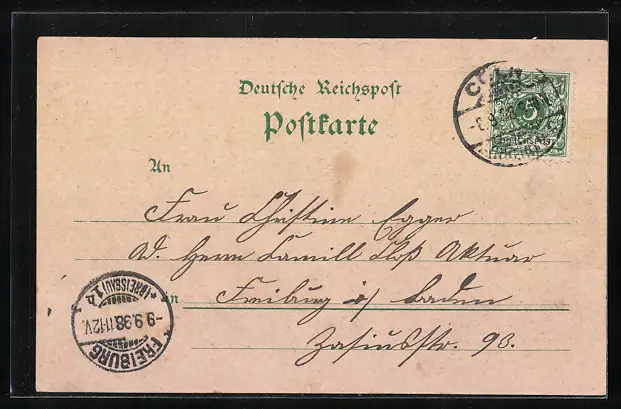 Deutsche Reichspost
Postkarte
An
Frau Christine Egger
Ad. Herrn Camill Aktuar
in Freiburg i/ Baden
Zasiusstr. 98.
5
FREIBURG
(BREISGAU) 1
-9.9.98.11-12V.